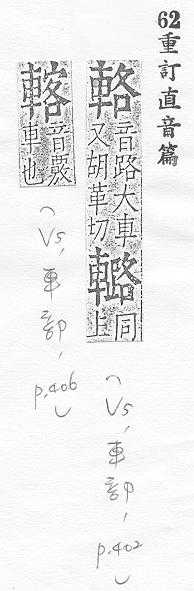 62重訂直音篇
輅
音路大車
又胡革切
同
上
(V5, 車部, p.402)
音覈
車也
(V5, 車部, p.406)